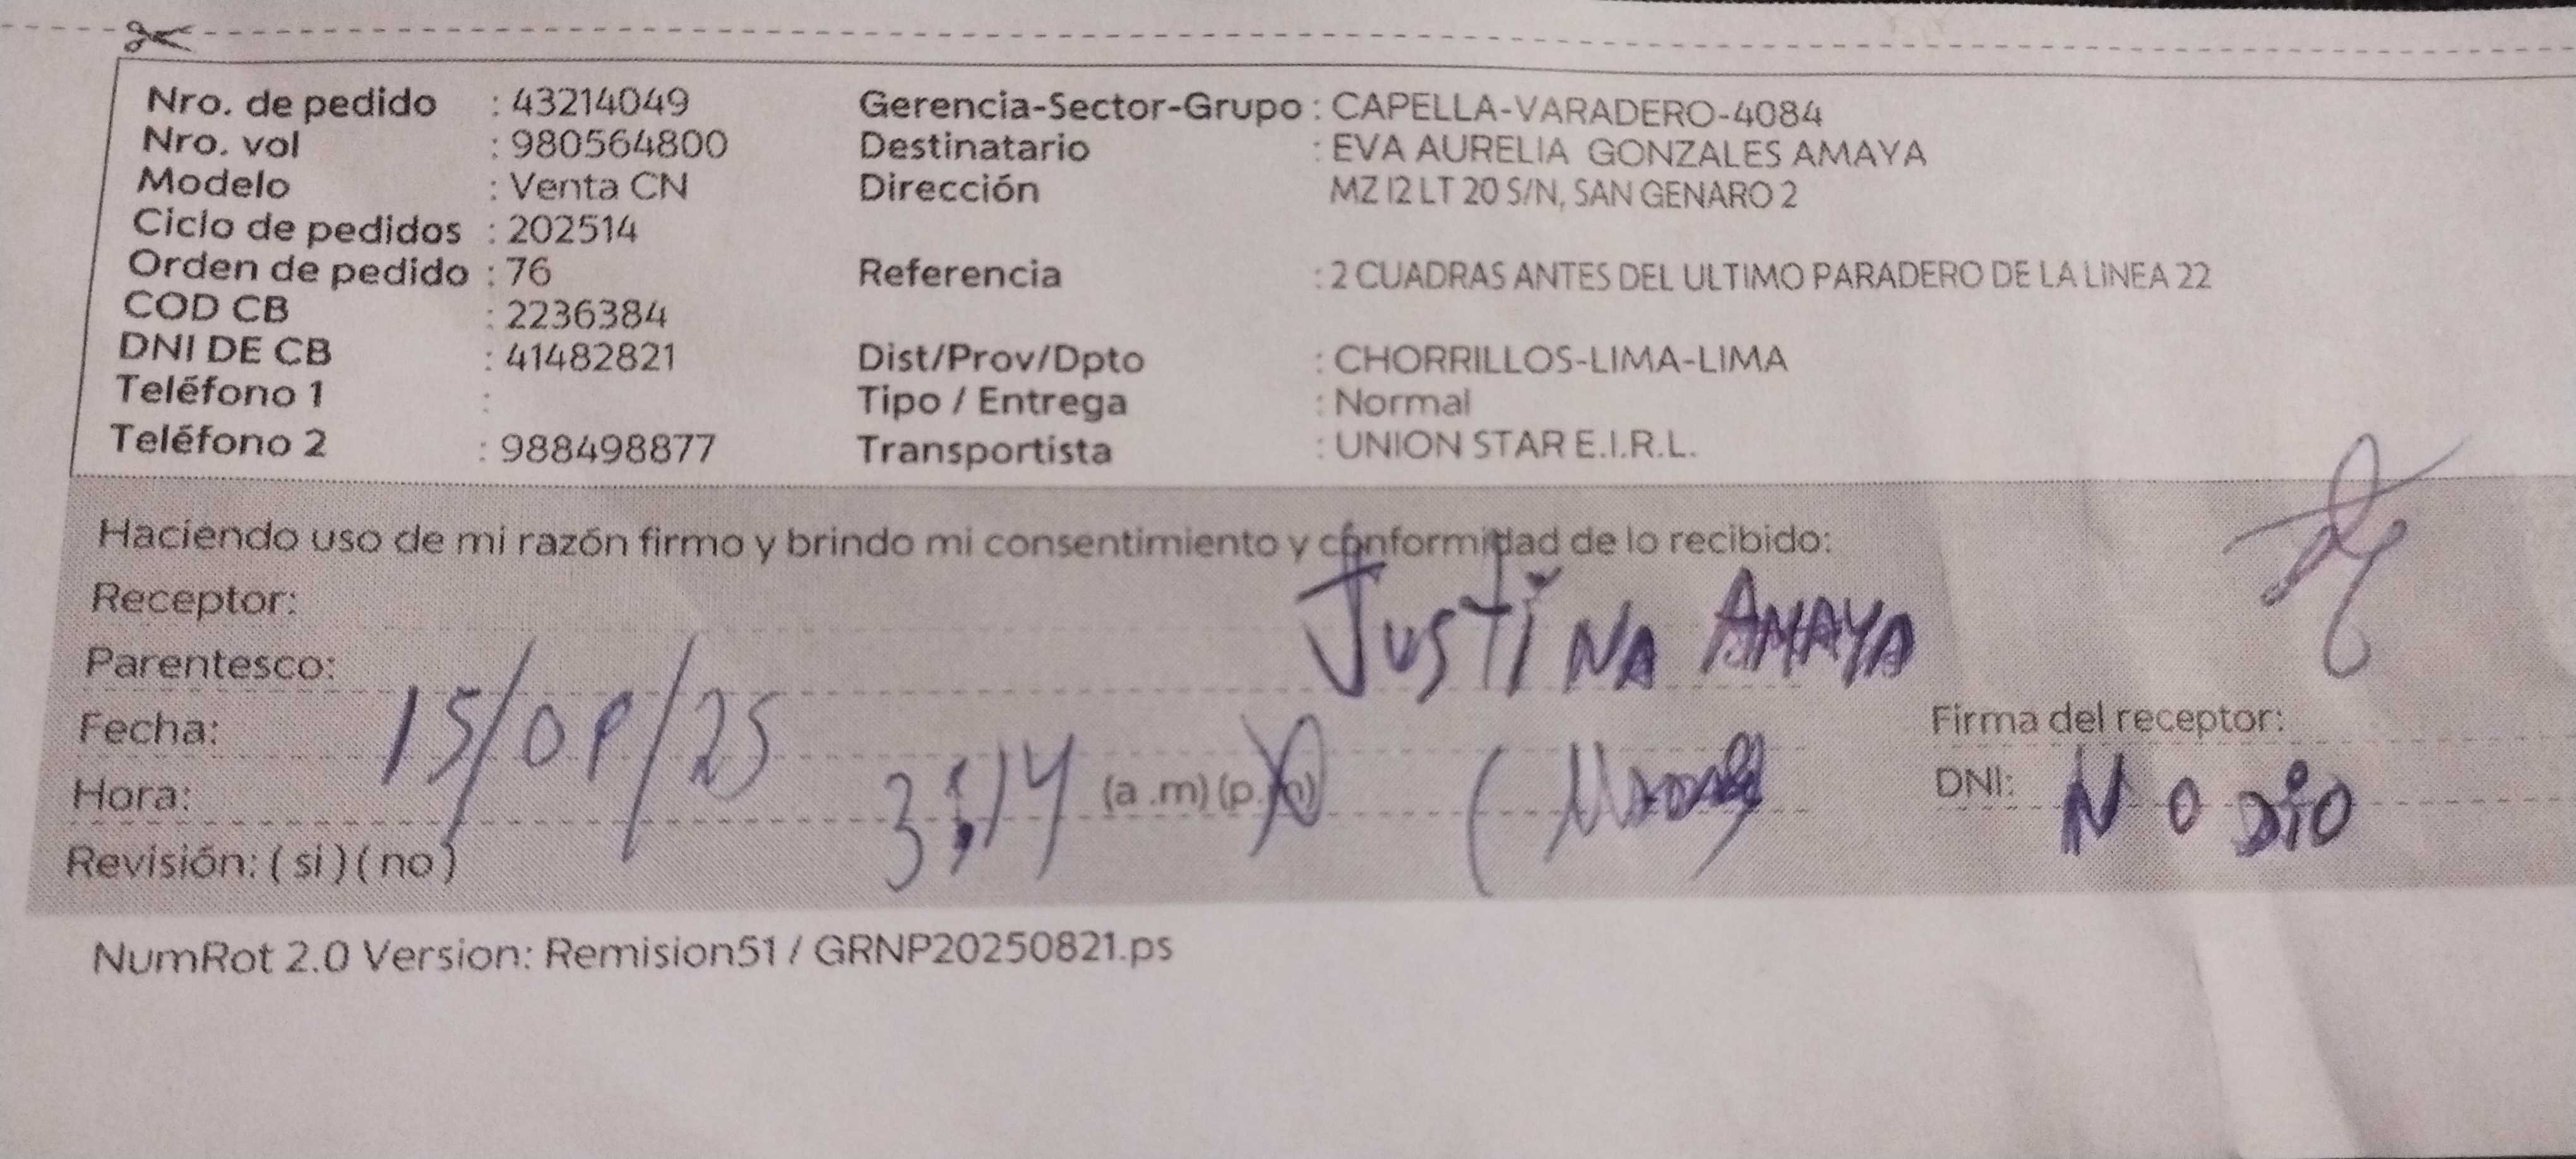 Nro. de pedido : 43214049
Nro. vol : 980564800
Modelo : Venta CN
Ciclo de pedidos : 202514
Orden de pedido : 76
COD CB : 2236384
DNI DE CB : 41482821
Teléfono 1 :
Teléfono 2 : 988498877
Gerencia-Sector-Grupo : CAPELLA-VARADERO-4084
Destinatario : EVA AURELIA GONZALES AMAYA
Dirección MZ I2 LT 20 S/N, SAN GENARO 2
Referencia : 2 CUADRAS ANTES DEL ULTIMO PARADERO DE LA LINEA 22
Dist/Prov/Dpto : CHORRILLOS-LIMA-LIMA
Tipo / Entrega : Normal
Transportista : UNION STAR E.I.R.L.
Haciendo uso de mi razón firmo y brindo mi consentimiento y conformidad de lo recibido:
Receptor: JUSTiNA AMAYA
Parentesco:
Fecha: 15/09/25
Hora: 3:14 (a .m) (p.m)
Revisión: ( si ) ( no )
Firma del receptor:
DNI: NO DiO
NumRot 2.0 Version: Remision51 / GRNP20250821.ps